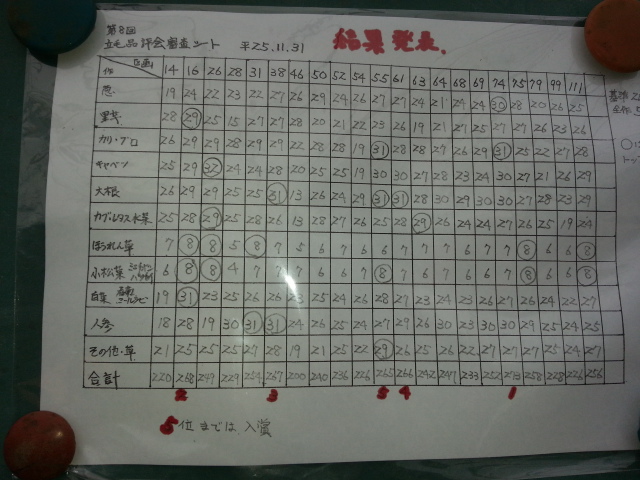 第8回
立毛品評会審査シート 平25.11.31 結果発表.
区画 14 16 26 28 31 38 46 50 52 54 55 61 63 64 68 69 74 75 79 99 111
作
葱 19 24 22 23 22 27 26 29 24 26 27 27 24 21 24 24 30 28 20 26 25
里芋 28 29 25 15 27 27 28 20 21 22 23 26 19 21 21 25 27 27 26 23 26
カリ・ブロ 26 29 29 28 29 29 22 28 28 19 31 28 28 27 26 29 31 25 22 27 28
キャベツ 25 29 32 24 24 28 20 25 25 19 30 30 27 28 23 30 30 27 21 26 29
大根 26 29 29 25 25 31 13 26 24 29 31 31 28 30 29 30 30 27 28 23 29
カブ・レタス・水菜 25 28 29 25 28 26 13 28 27 26 25 28 29 26 24 24 27 26 25 19 24
ほうれん草 7 8 8 5 8 7 5 6 7 6 6 7 7 6 7 7 7 8 6 6 8
小松菜 6 8 8 4 7 7 7 6 6 6 8 7 6 6 6 7 7 8 7 6 8
白菜 19 31 23 25 26 26 23 25 24 26 28 27 23 24 23 26 27 26 24 22 27
人参 18 28 19 30 31 31 24 26 25 24 27 29 26 30 23 30 30 29 25 24 25
その他・草 21 25 25 25 27 28 19 21 25 22 29 26 25 26 22 27 27 27 25 24 27
合計 220 268 249 229 254 267 200 240 236 226 265 266 242 247 233 252 258 228 226 256
2 3 5 4 1
5位までは入賞
基準